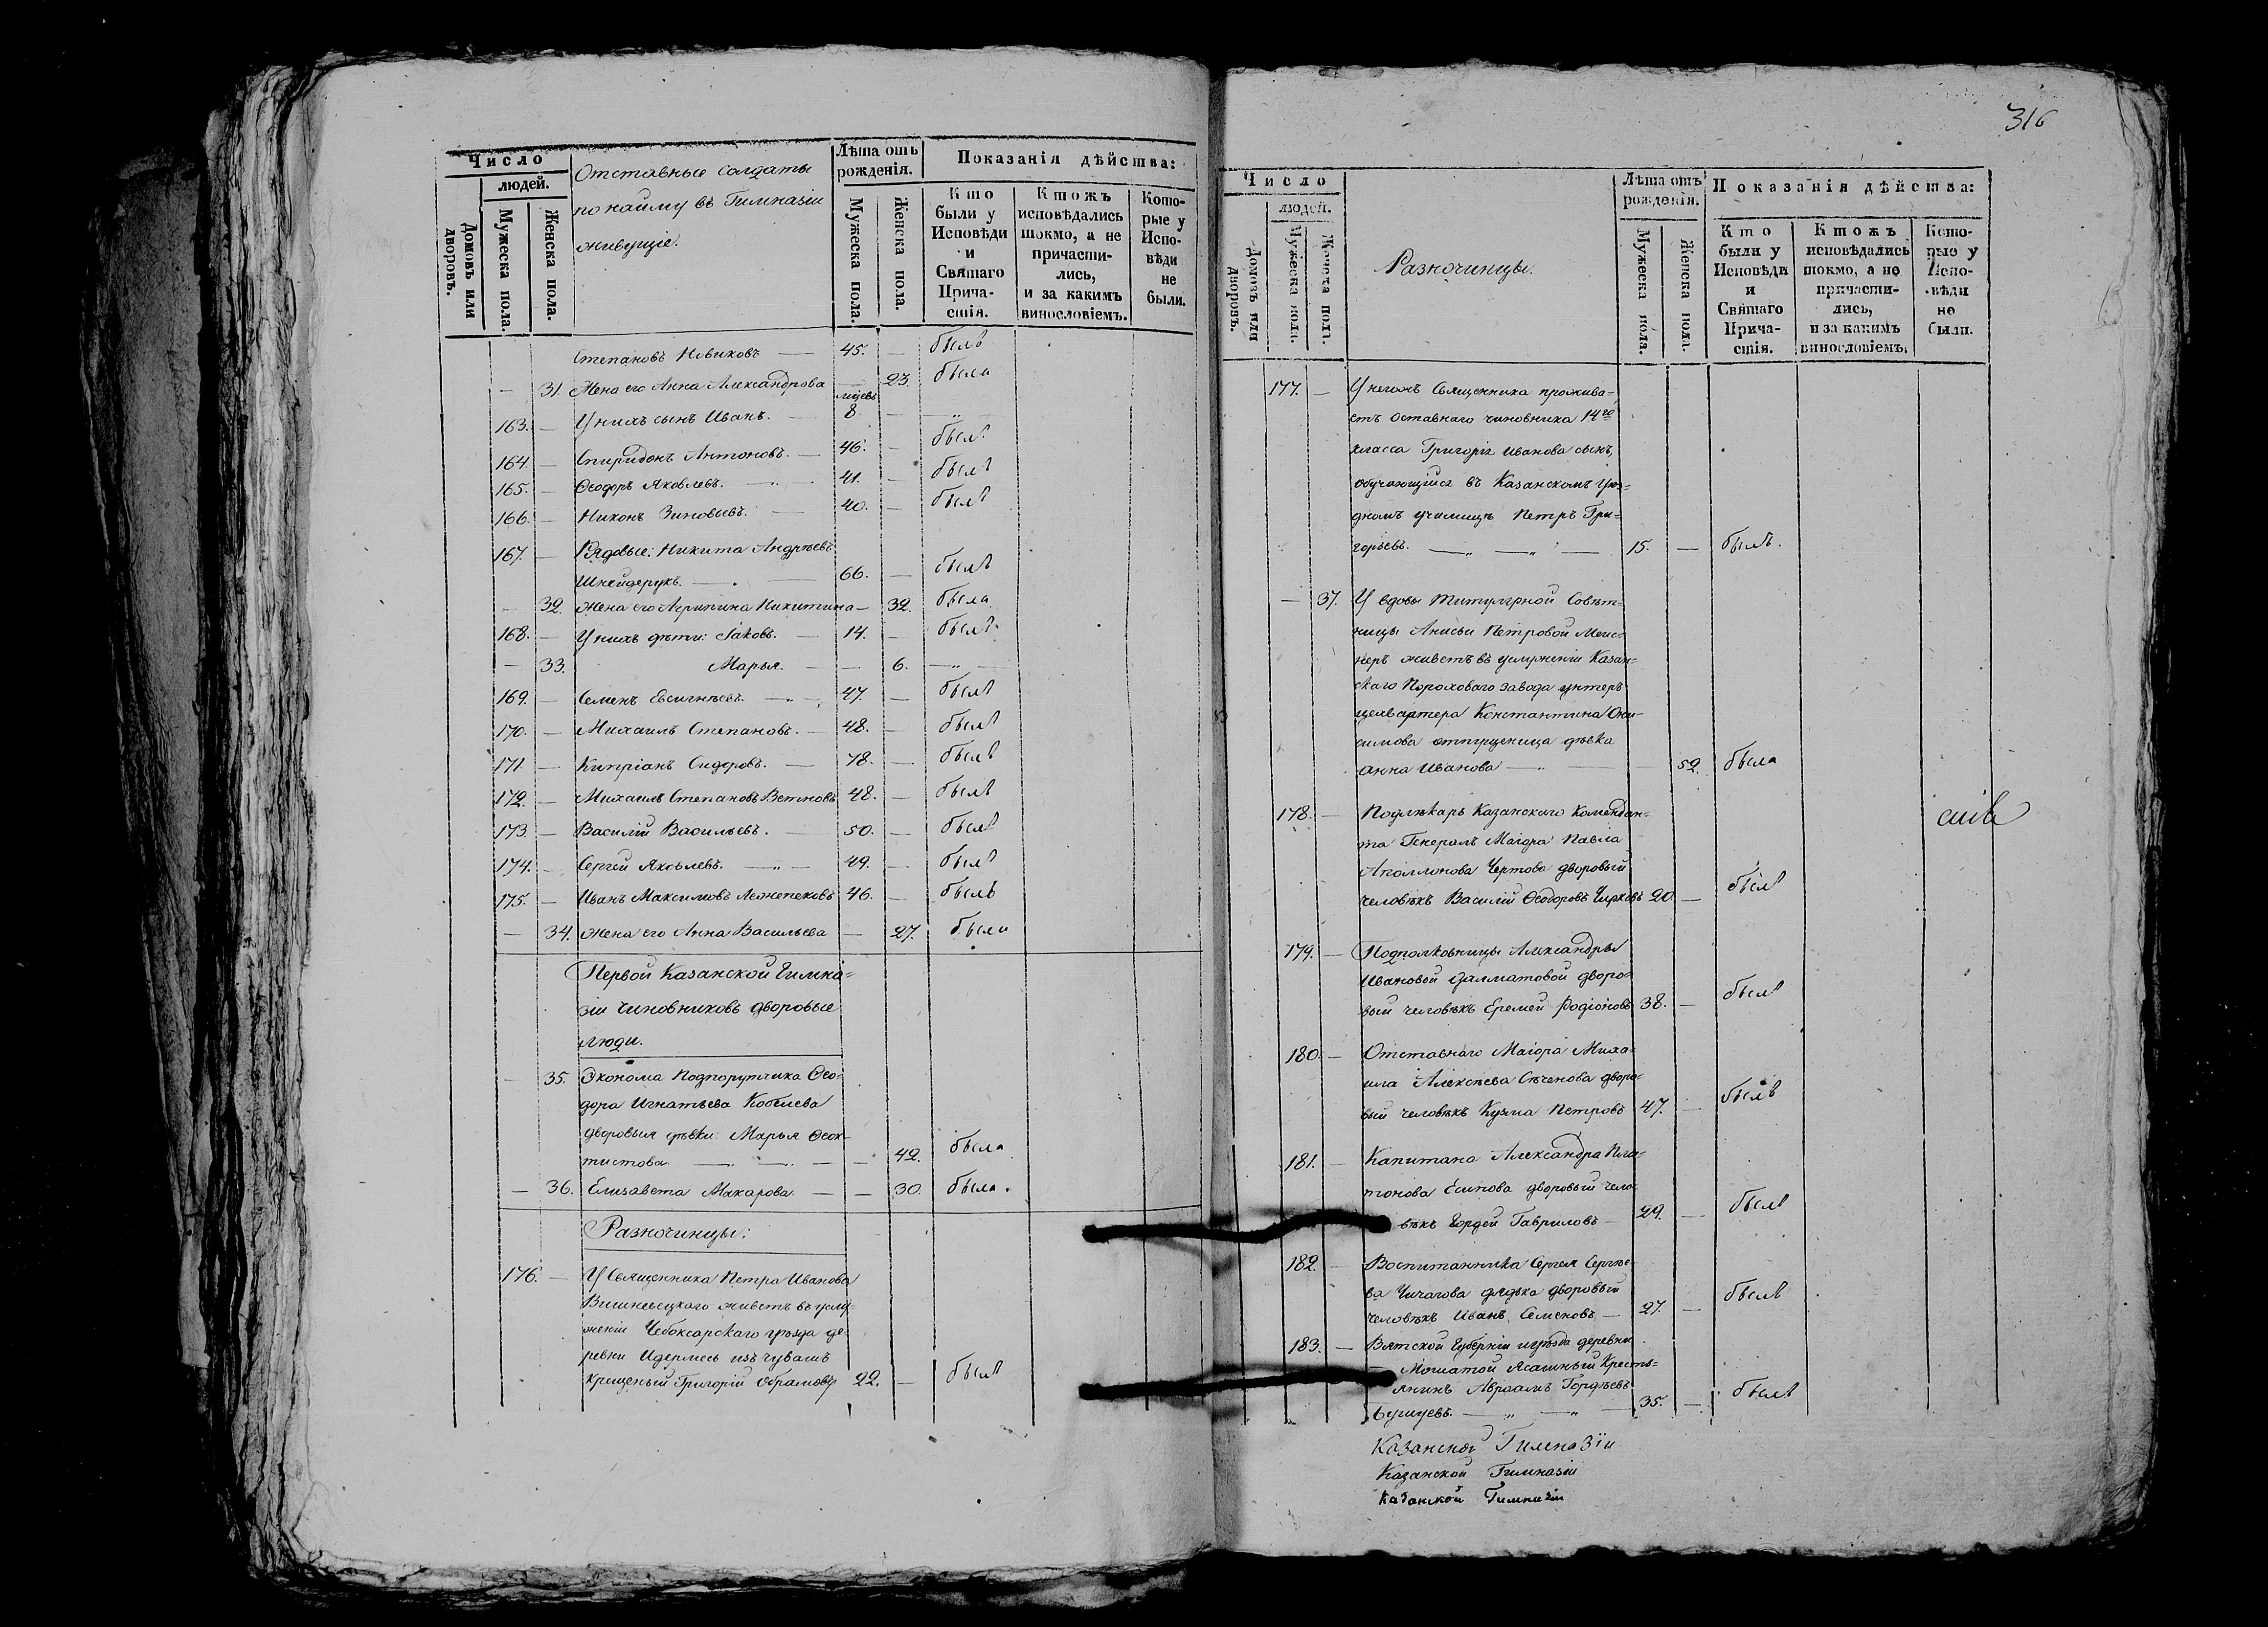 Число
людей.
Домовъ или дворовъ.
Мужеска пола.
Женска пола.
Отставные солдаты
по найму въ Гимназіи
живущіе.
Лѣта отъ рожденія.
Мужеска пола.
Женска пола.
Показанія дѣйства:
Кто были у Исповѣди и Святаго Прича-стія.
Ктожъ исповѣдались токмо, а не причасти-лись, и за какимъ винословіемъ.
Кото-рые у Испо-вѣди не были.
Степановъ Новиковъ — 45. — былъ
— 31. Жена его Анна Александрова — 23. была
мѣсецъ
163. — У нихъ сынъ Иванъ. — 8 — „
164. — Спиридонъ Антоновъ. — 46. — былъ
165. — Ѳеодоръ Яковлевъ. — 41. — былъ
166. — Никонъ Зиновьевъ. — 40. — былъ
167. — Рядовые: Никита Андрѣевъ
Шнейдерукъ. — 66. — былъ
— 32. Жена его Агрипина Никитина — 32. была
168. — У нихъ дѣти: Іаковъ. — 14. — былъ
— 33. Марья. — — 6. — „ —
169. — Семенъ Евсигнѣевъ. — „ — 47. — былъ
170. — Михаилъ Степановъ. — 48. — былъ
171 — Кипріанъ Сидоровъ. — 78. — былъ
172. — Михаилъ Степановъ Ветновъ 48. — былъ
173. — Василій Васильевъ. — 50. — былъ
174. — Сергей Яковлевъ. — „ — 49. — былъ
175. — Иванъ Максимовъ Лежепековъ 46. — былъ
— 34. Жена его Анна Васильева — 27. была
Первой Казанской Гимна-
зіи Чиновниковъ дворовые
люди.
— 35. Эконома Подпорутчика Ѳео-
дора Игнатьева Кобелева
дворовыя дѣвки: Марья Ѳеок-
тистова — — — — 42. была
— 36. Елизавета Макарова. — — 30. была.
Разночинцы:
176. — У Священника Петра Иванова
Вишневецкаго живетъ въ услу-
женіи Чебоксарскаго уѣзда де-
ревни Идермесь изъ чувашъ
крещеный Григорій Абрамовъ 22. — былъ
316
Число
людей.
Домовъ или дворовъ.
Мужеска пола.
Женска пола.
Разночинцы.
Лѣта отъ рожденія.
Мужеска пола.
Женска пола.
Показанія дѣйства:
Кто были у Исповѣди и Святаго Прича-стія.
Ктожъ исповѣдались токмо, а не причасти-лись, и за какимъ винословіемъ.
Кото-рые у Испо-вѣди не были.
177. — У негожъ Священника прожива-
етъ оставнаго чиновника 14го
класса Григорія Иванова сынъ,
обучающійся въ Казанскомъ уѣз-
дномъ училищѣ Петръ Гри-
горьевъ. — „ — „ — 15. — былъ.
— 37. У вдовы Титулярной Совѣт-
ницы Анисьи Петровой Мейс-
неръ живетъ въ услуженіи Казан-
скаго Пороховаго завода унтеръ
цейхвартера Константина Они-
симова отпущеница дѣвка
Анна Иванова — „ — — 52. была
178. — Подлѣкарь Казанскаго Комендан-
та Генералъ Маіора Павла
Аполлонова Чертова дворовый
человѣкъ Василій Ѳеодоровъ Чирковъ 20. — былъ
179. — Подполковницы Александры
Ивановой Далматовой дворо-
вый человѣкъ Еремей Родіоновъ 38. — былъ
180. — Отставнаго Маіора Миха-
ила Алексѣева Сѣченова дворо-
вый человѣкъ Кузма Петровъ 47. — былъ
181. — Капитана Александра Пла-
тонова Есипова дворовый чело-
вѣкъ Гордей Гавриловъ — 29. — былъ
182. — Воспитанника Сергея Сергѣе-
ва Чичагова дядька дворовый
человѣкъ Иванъ Семеновъ — 27. — былъ
183. — Вятской Губерніи и уѣзда деревни
Мошатой Ясашный Кресть-
янинъ Авраамъ Гордѣевъ
— „ — „ — 35. — былъ
Казанской Гимназіи
Казанской Гимназіи
Казанской Гимназіи